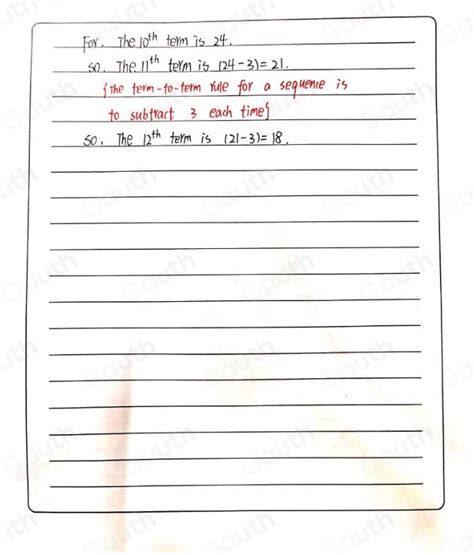 For. The 10th term is 24.
so. The 11th term is (24-3)=21.
{The term-to-term rule for a sequence is
to subtract 3 each time}
so. The 12th term is (21-3)=18.
Gauth